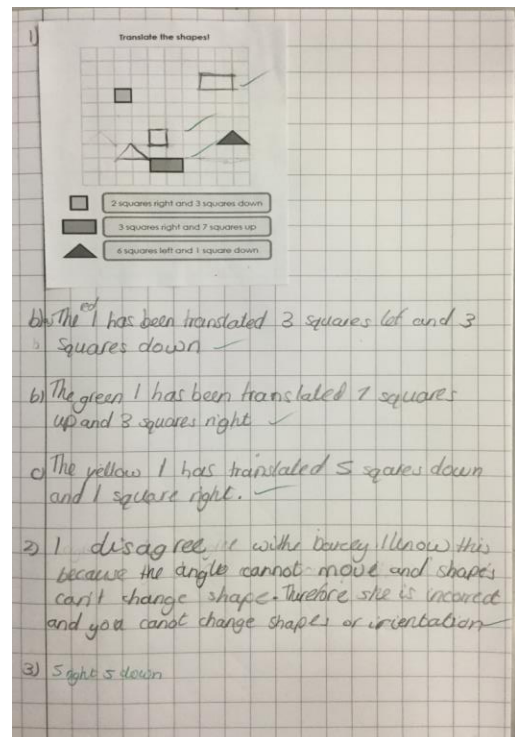 1)
Translate the shapes!
2 squares right and 3 squares down
3 squares right and 7 squares up
6 squares left and 1 square down
b) The ed 1 has been translated 3 squares lef and 3
squares down
b) The green 1 has been translated 7 squares
up and 3 squares right
c) The yellow 1 has translated 5 sqares down
and 1 square right.
2) I disagree withe I know this
because the angle cannot move and shapes
can't change shape. Therefore she is incorrect
and you canot change shapes or irientation
3) 5 down